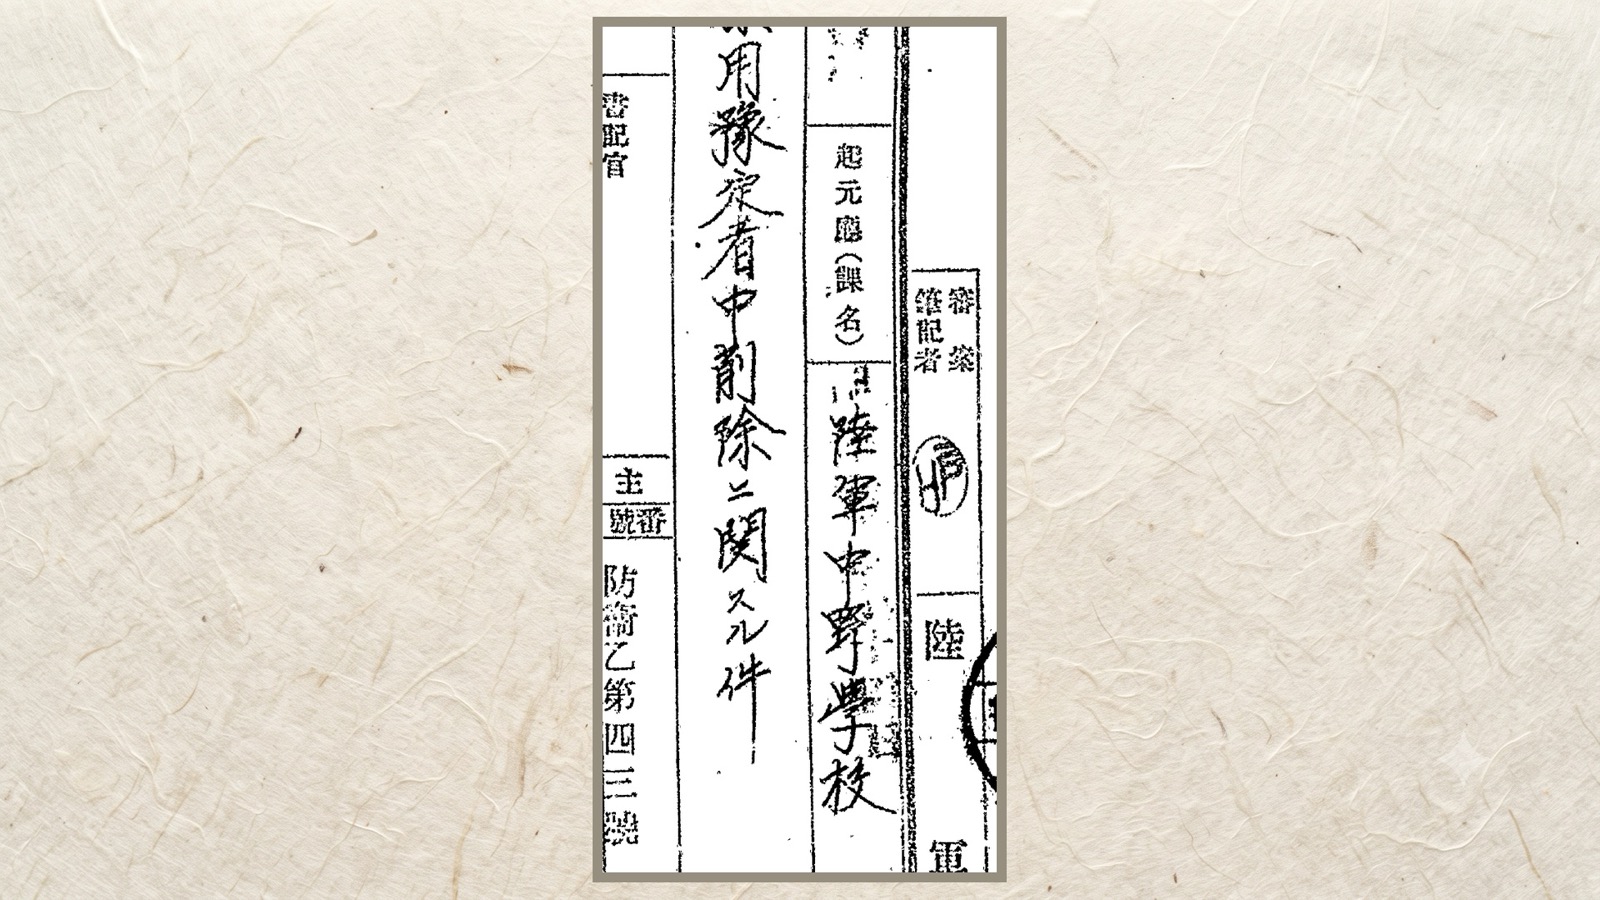 審案
筆記者
陸
軍
起元廳（課名）
陸軍中野學校
用豫定者中削除ニ関スル件
書記官
主
番號
防衞乙第四三號